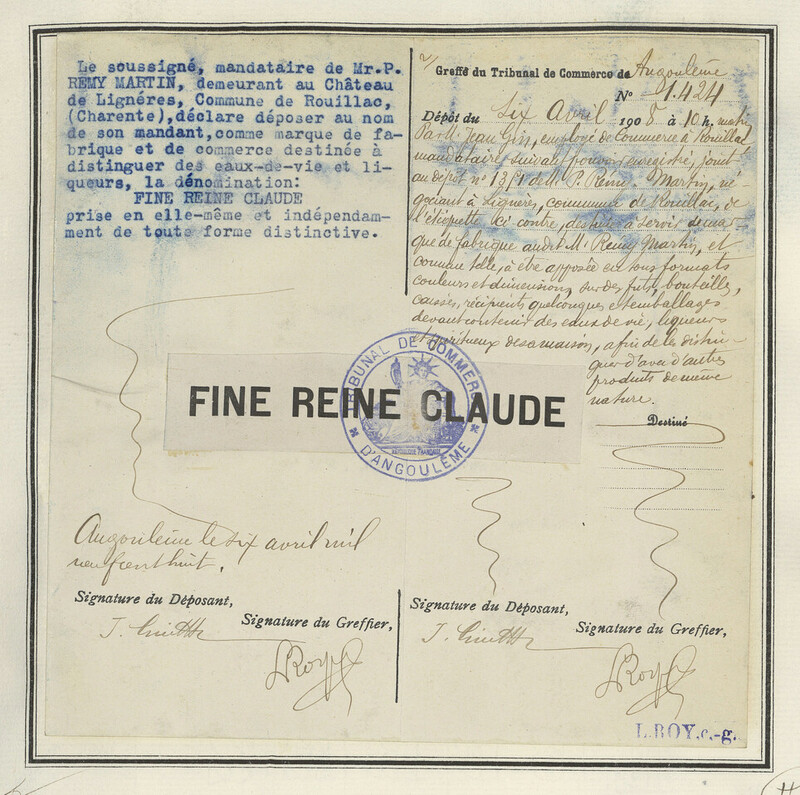 Le soussigné, mandataire de Mr.P.
REMY MARTIN, demeurant au Château
de Lignéres, Commune de Rouillac,
(Charente), déclare déposer au nom
de son mandant, comme marque de fa-
brique et de commerce destinée à
distinguer des eaux-de-vie et li-
queurs, la dénomination:
FINE REINE CLAUDE
prise en elle-même et indépendam-
ment de toute forme distinctive.
Angoulême le six avril mil
neuf cent huit.
Signature du Déposant,
Signature du Greffier,
LRoy
Greffe du Tribunal de Commerce de Angoulême
N° 1.424
Dépôt du Six Avril 1908 à 10 h. matin
Par M. Jean Gin, employé de Commerce à Rouillac
mandataire, suivant pouvoir enregistré, joint
au dépôt n° 1391 de M. P. Rémi Martin, né-
gociant à Lignères, commune de Rouillac, de
l'étiquette ici contre, destinée à servir de mar-
que de fabrique audit M. Remy Martin, et
comme telle, à être apposée en tous formats
couleurs et dimensions, sur des futs, bouteilles,
caisses, récipients quelconques et emballages
devant contenir des eaux de vie, liqueurs
et spiritueux de sa maison, afin de les distin-
guer d'avec d'autres
produits de même
nature.
Destiné
FINE REINE CLAUDE
TRIBUNAL DE COMMERCE
D'ANGOULÊME
RÉPUBLIQUE FRANÇAISE
Signature du Déposant,
Signature du Greffier,
LRoy
L. ROY. c.-g.